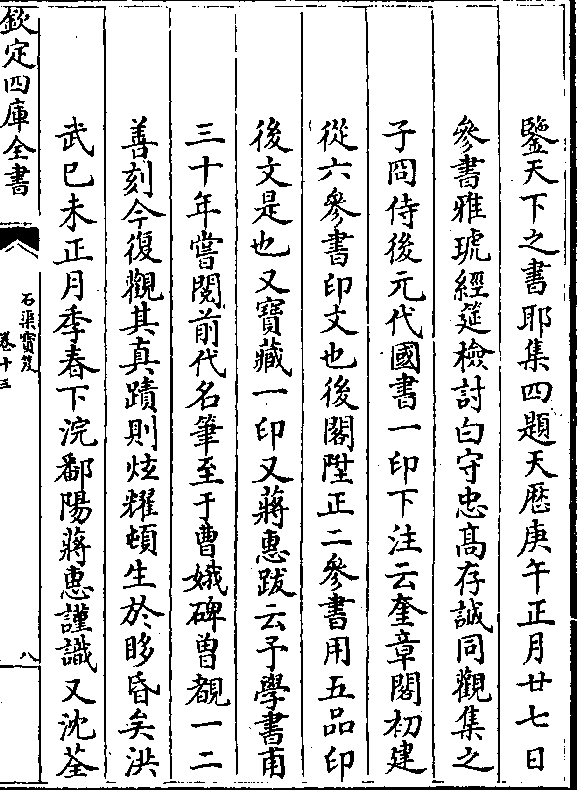 鑒天下之書耶集四題天厯庚午正月廿七日
參書雅琥經筵檢討白守忠髙存誠同觀集之
子岡侍後元代國書一印下注云奎章閣初建
從六參書印文也後閣陞正二參書用五品印
後文是也又寶藏一印又蔣惠跋云予學書甫
三十年嘗閱前代名筆至于曹娥碑曽覩一二
善刻今復觀其真蹟則炫耀頓生於眵昏矣洪
武已未正月季春下浣鄱陽蔣惠謹識又沈荃
欽定四庫全書
石渠寳笈
卷十三
八